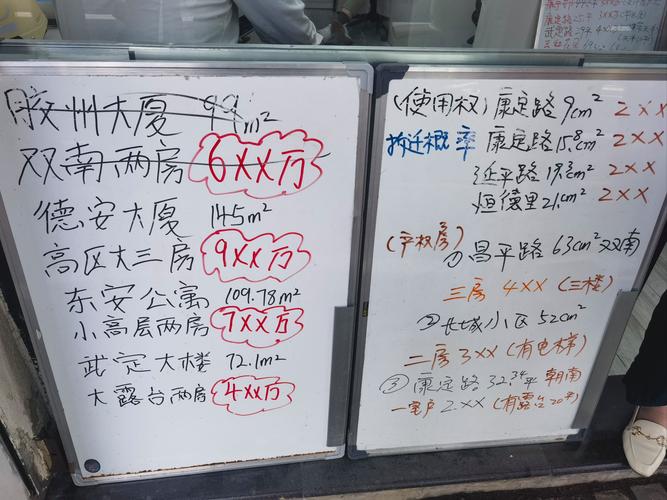 胶州大厦 99m²
双南两房 6XX万
德安大厦 145m²
高区大三房 9XX万
东安公寓 109.78m²
小高层两房 7XX万
武定大楼 72.1m²
大露台两房 4XX万
(使用权) 康定路 9cm² 2XX
拆迁概率 康定路 15.8cm² 2XX
延平路 19.3cm² 2XX
恒德里 21cm² 2XX
(产权房) ① 昌平路 63cm² 双南
三房 4XX (三楼)
② 长城小区 52cm²
二房 3XX (有电梯)
③ 康定路 32.34平 朝南
一室户 2XX (有露台20平)